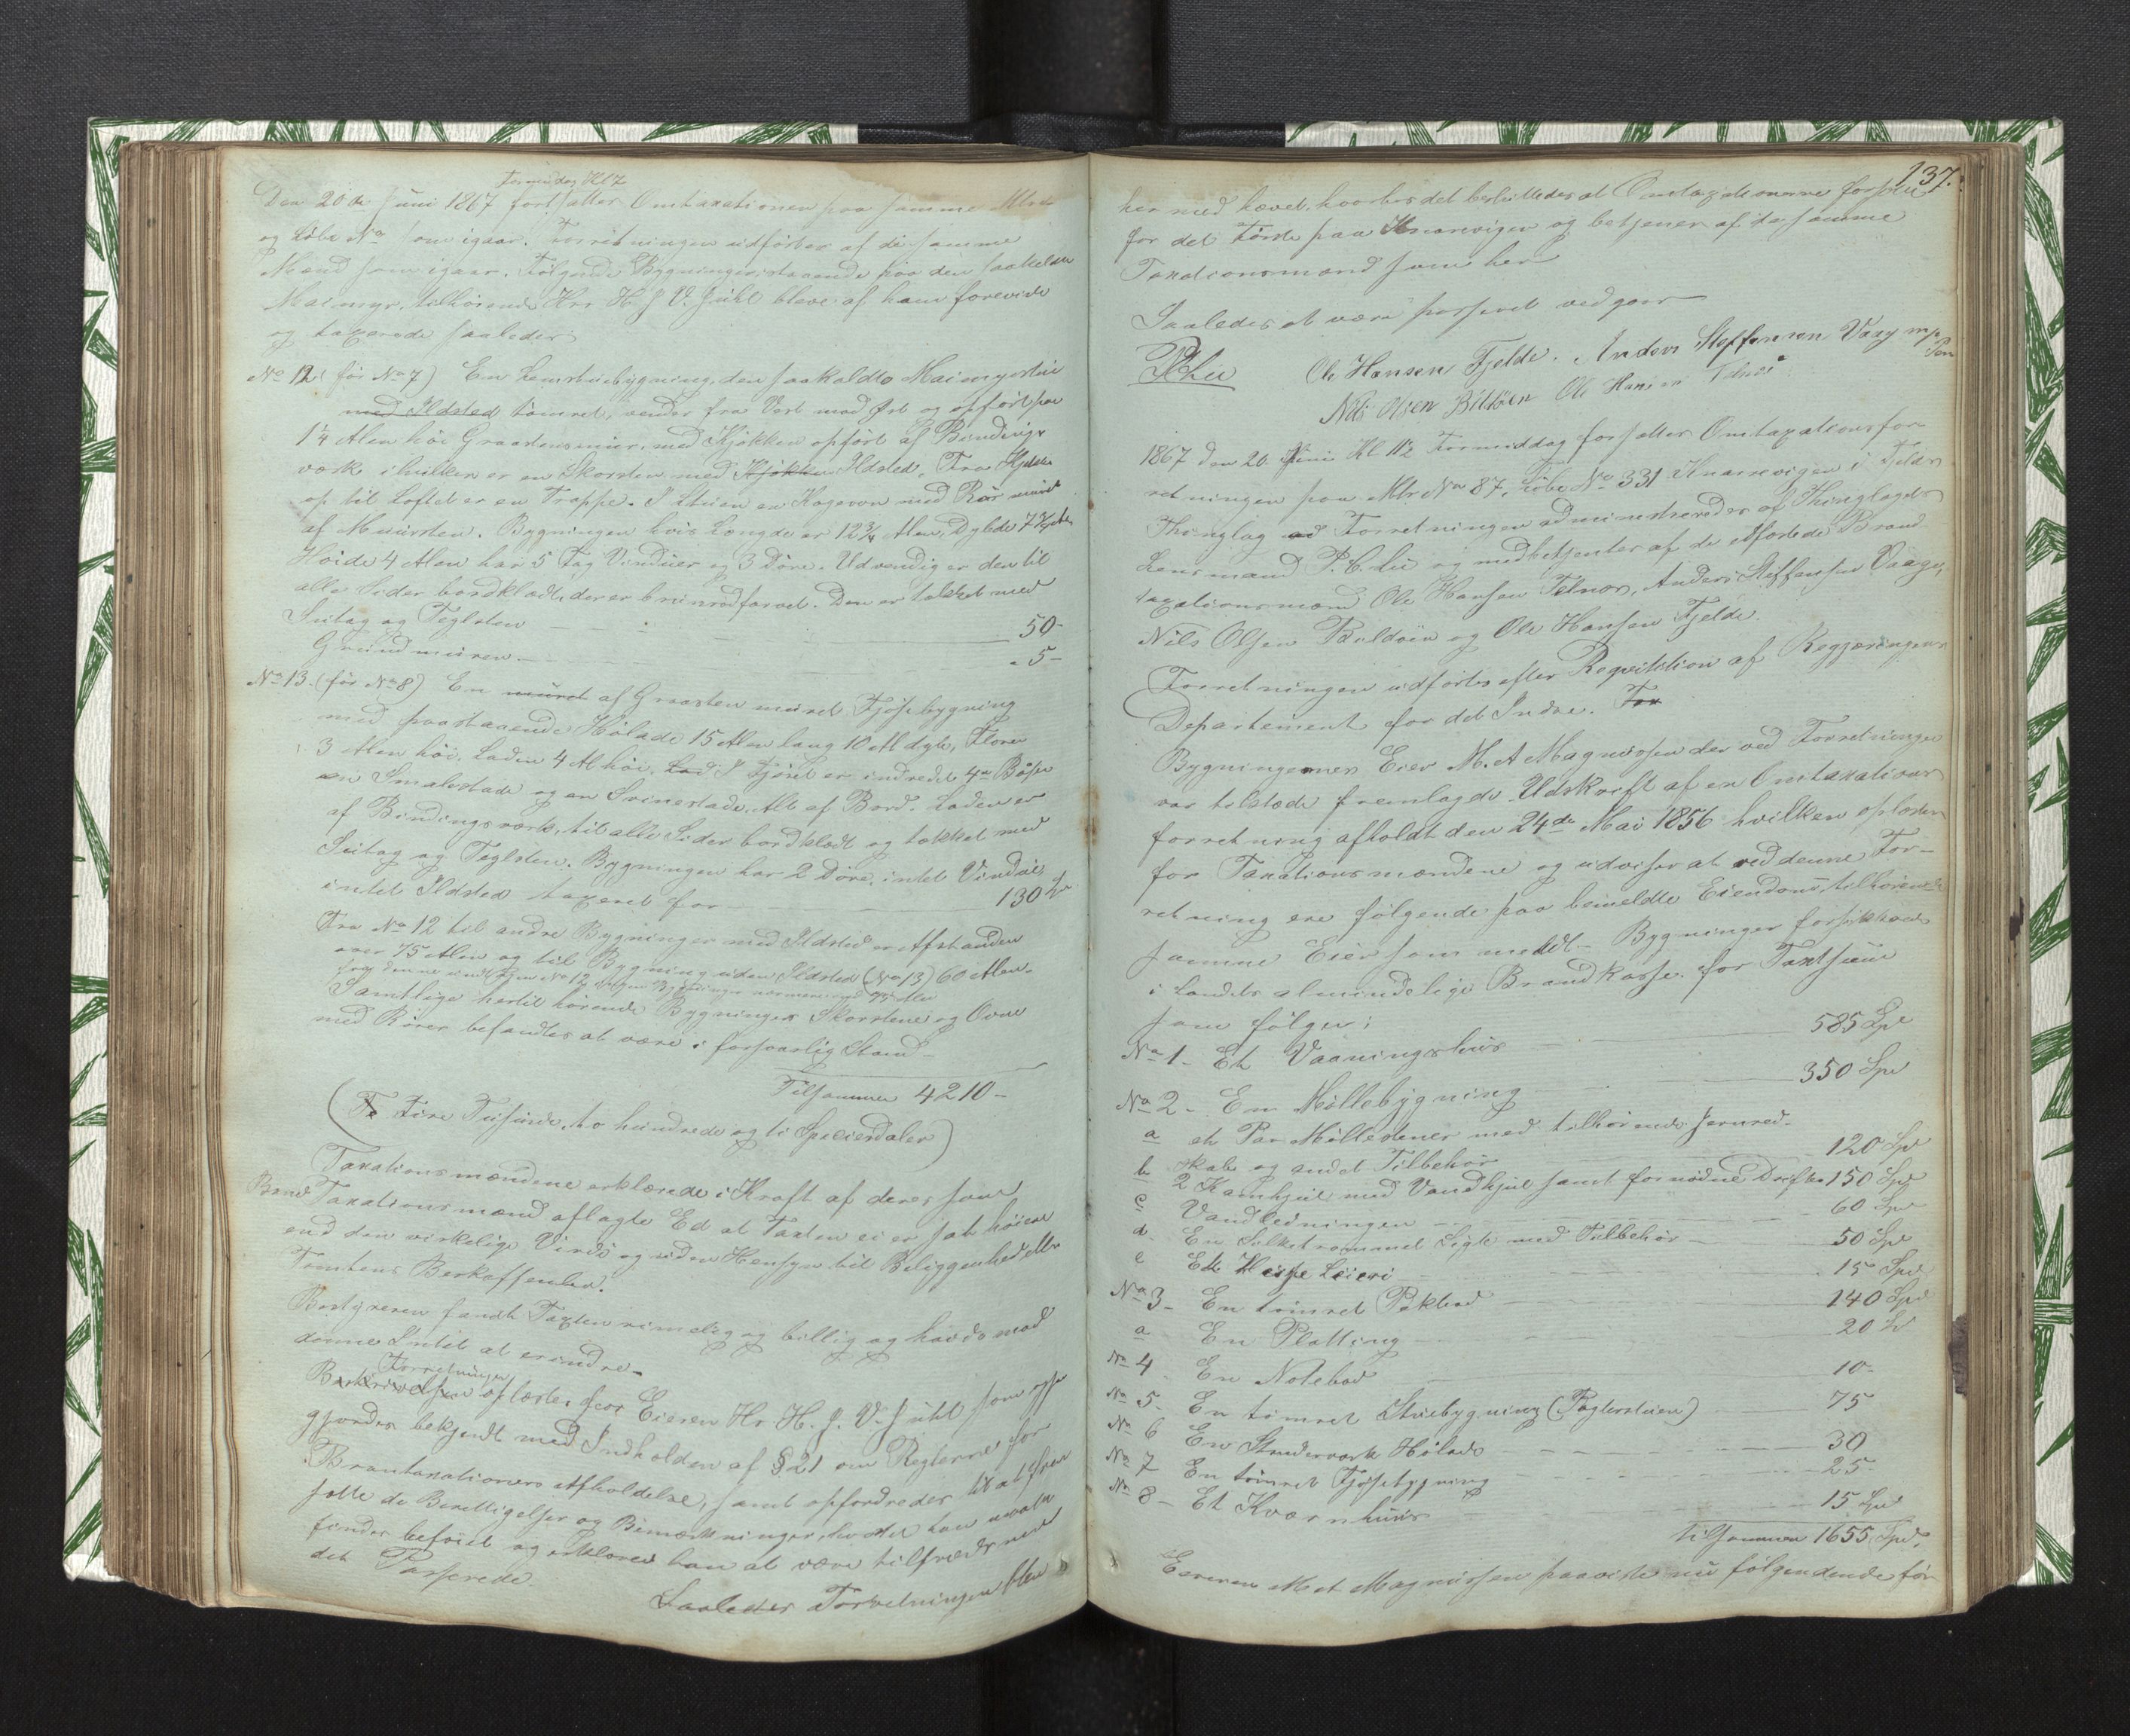 Formiddag Kl 7
Den 20de Juni 1867 fortsattes Omtaxationen paa samme Matr
og Løbe No som igaar. Forretningen udførtes af de samme
Mænd som igaar. Følgende Bygninger staaende paa den saakaldte
Maimyr, tilhørende Hr H. J. V. Juhl bleve af ham foreviste
og taxerede saaledes
No 12 (før No 7) En Lemstuebygning, den saakaldte Maimyrstue
med Ildsted tømret, vender fra Vest mod Øst og opført paa
1¼ Alen høi Graastensmuur, med Kjøkken opført af Bindings
værk i hvilken er en Skorsten med Kjøkken Ildsted, Fra Kjøkken
op til Loftet er en Trappe. I Stuen en Kogeovn med Rør muret
af Muursten. Bygningen hvis Længde er 12¾ Alen, Dybde 7
Høide 4 Alen har 5 Fag Vinduer og 3 Døre. Udvendig er den til
alle Sider bordklædt, der er brunrødfarvet. Den er tækket med
Sutag og Teglsten — 50-
Grundmuren — 5-
No 13. (før No 8) En muret af Graasten muret Fjøsbygning
med paastaaende Hølade 15 Alen lang 10 Al dyb, Floren
3 Alen høi, Laden 4 Al høi. Lad I Fjøset er indredet 4 Baase
en Smalestade og en Svinestade, Alt af Bord. Laden er
af Bindingsværk, til alle Sider bordklædt og tækket med
Sutag og Teglsten. Bygningen har 2 Døre, intet Vindue,
intet Ildsted taxeret for — 130
Fra No 12 til andre Bygninger med Ildsted er Afstanden
over 75 Alen og til Bygning uden Ildsted (No 13) 60 Alen.
Samtlige hertil hørende Bygninger Skorstene og Ovne
med Rører befandtes at være i forsvarlig Stand-
Tilsammen 4210 -
(Fi Fire Tusinde, to hundrede og ti Speciesdaler)
Taxationsmændene erklærede i Kraft af deres som
Brand Taxationsmænd aflagte Ed at Taxten ei er sat høiere
end den virkelige Værdi og uden Hensyn til Beliggenhed eller
Tomtens Beskaffenhed.
Bestyreren fandt Taxten rimelig og billig og havde mod
denne Intet at erindre-
Forretningen
Beskrivelsen oplæstes for Eieren Hr H. J. V. Juhl som ogsaa
gjordes bekjendt med Indholden af § 21 om Reglerne for
Brantaxationers Afholdelse, samt opfordredes til at frem
sætte de Berettigelser og Bemærkninger, hvortil han maatte
findes beføiet og erklærede han at være tilfreds med
det Passerede.
Saaledes Forretningen blev
137.
her med hævet, hvorhos det besluttedes at Omtaxationerne forsættes
for det første paa Knarrevigen og betjenes af de samme
Taxationsmænd som her
Saaledes at være passeret vedgaaes
PChu
Ole Hansen Fjelde. Anders Steffensen Vaag m p Pen
Nils Olsen Bildøen Ole Hansen Telnes
1867 den 20. Juni Kl 11½ Formiddag forsattes Omtaxationsfor
retningen paa Matr No 87, Løbe No 331 Knarrevigen i Fjeld
Thinglag ad Forretningen administreredes af Thinglagets
Lensmand P. C. Lie og medbetjentes af de edfæstede Brand
taxationsmænd Ole Hansen Telnes, Anders Steffensen Vaage,
Nils Olsen Bildøen og Ole Hansen Fjelde.
Forretningen udførtes efter Requisition af Regjæringens
Departement for det Indre. For
Bygningernes Eier M. A Magnussen der ved Forretningen
var tilstæde fremlagde Udskrift af en Omtaxations
forretning afholdt den 24de Mai 1856 hvilken oplæstes
for Taxationsmændene og udviser at ved denne For-
retning ere følgende paa bemeldte Eiendom tilhørende
samme Eier som meldt - Bygninger forsikkrede
i Landets almindelige Brandkasse for Taxtsum
som følger:
No 1 - Et Vaaningshuus — 585 Spd
No 2 - En Møllebygning — 350 Spd
a et Par Møllestener med tilhørende Jernred-
skabe og andet Tilbehør — 120 Spd
b 2 Kamhjul med Vandhjul samt fornødne Drifter 150 Spd
c Vandledningen — 60 Spd
d. En Silketrommel Sigte med Tilbehør — 50 Spd
e Et Heise Leieri — 15 Spd
No 3 - En tømret Pakbod — 140 Spd
a En Platting — 20 Sp
No 4 En Notebod — 10-
No 5 - En tømret Stuebygning (Røgterstuen) — 75
No 6 En Stenderværk Hølade — 30
No 7 En tømret Fjøsbygning — 25-
No 8 - Et Kværnhuus — 15 Spd
tilsammen 1655 Spd.
Eieren M A Magnussen paaviste nu følgendende før